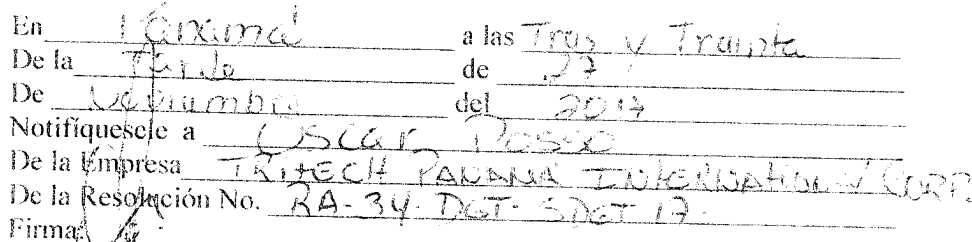 En Panamá a las Tres y Treinta
De la Tarde de 27
De Noviembre del 2017
Notifíquesele a Oscar Posso
De la Empresa TRITECH PANAMA INTERNATIONAL CORP.
De la Resolución No. RA-34-DGT-SDGT-17.
Firma: